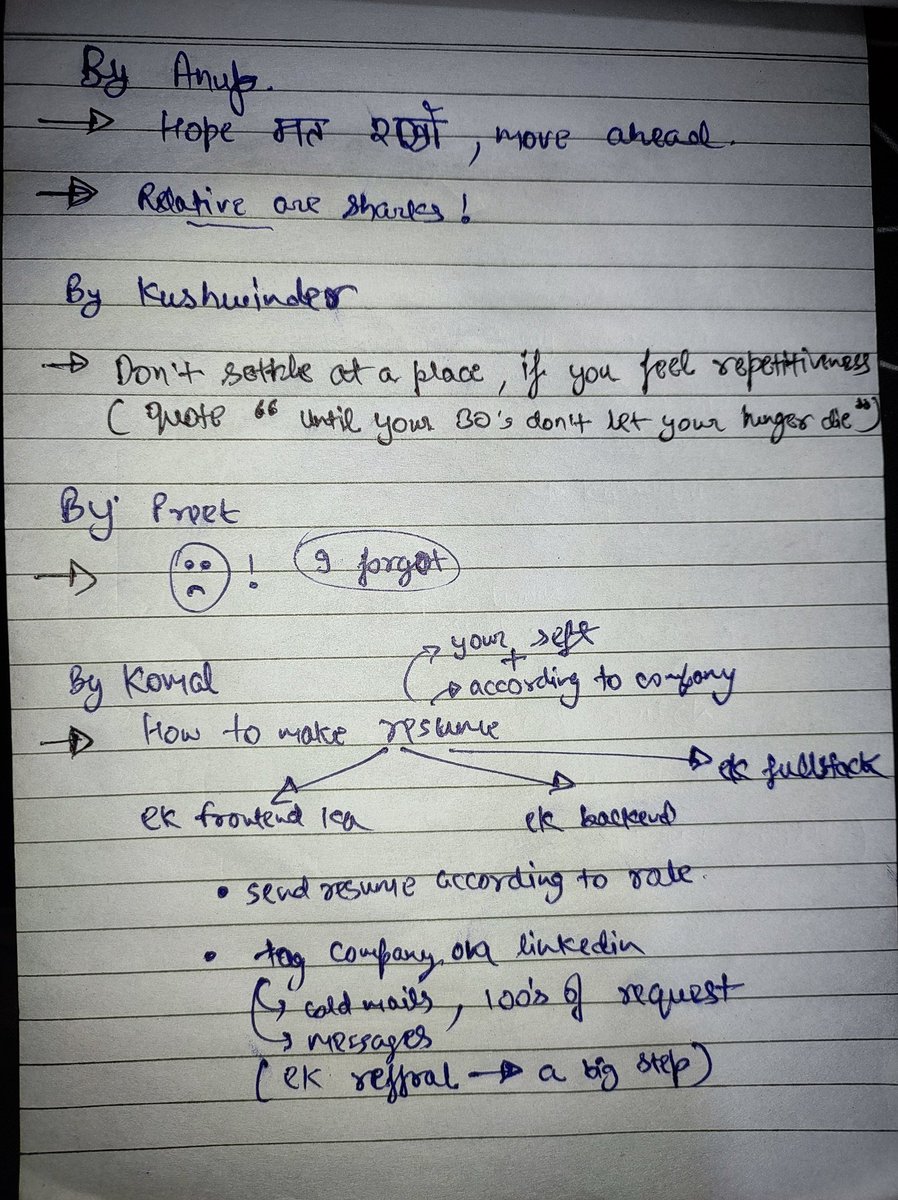 By Anup.
→ Hope मत रखो, move ahead.
→ Relative are sharks!
By Kushwinder
→ Don't settle at a place, if you feel repetitiveness
( quote “ until your 30's don't let your hunger die”)
By Preet
→ ! I forgot
your self
+
By Komal
according to company
→ How to make resume
ek fullstack
ek frontend ka
ek backend
• send resume according to rate.
• tag company on linkedin
cold mails, 100's of request
messages
(ek reffral → a big step)